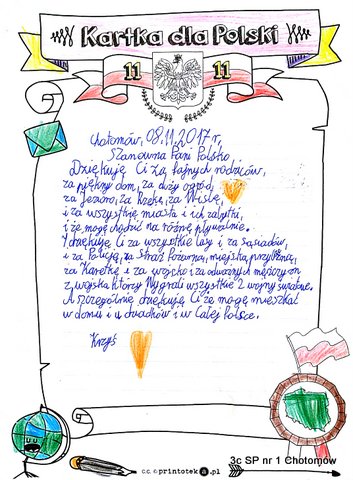 Kartka dla Polski
11 11
Chotomów, 08.11.2017 r,
Szanowna Pani Polsko
Dziękuję Ci za fajnych rodziców,
za piękny dom, za duży ogród,
za Jezioro, za Rzekę, za Wisłę,
i za wszystkie miasta i ich zabytki,
i że mogę chodzić na różne pływalnie.
I dziękuję Ci za wszystkie lasy i za sąsiadów,
i za Policję, za Straż Pożarną, miejską, przybrzeżną,
za Karetkę i za wojsko i za odważnych mężczyzn
z wojska którzy Wygrali wszystkie 2 wojny światowe.
A szczególnie dziękuję Ci że mogę mieszkać
w domu i u dziadków i w Całej Polsce.
Krzyś
c.c. printoteka.pl
3c SP nr 1 Chotomów